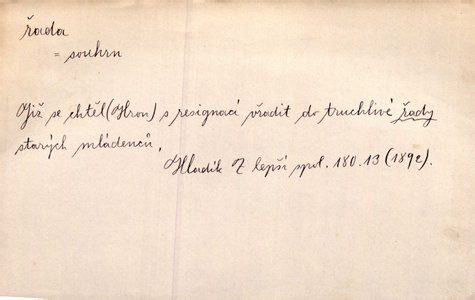 řada
= souhrn
Již se chtěl (Hron) s resignací vřadit do truchlivé řady
starých mládenců,
Hladík Z lepší spol. 180.13 (1892).